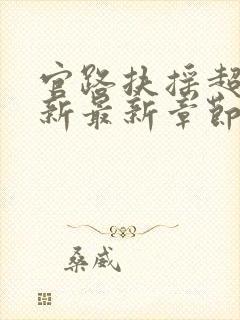 官路扶摇超
新最新章节
桑威